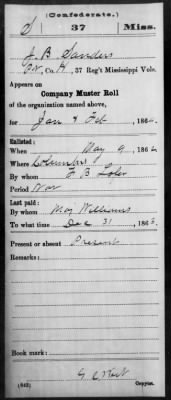 (Confederate.)
S 37 Miss.
J. B. Sanders
Pvt, Co. H, 37 Reg't Mississippi Vols.
Appears on
Company Muster Roll
of the organization named above,
for Jan & Feb, 186
Enlisted:
When May 9, 186
Where Columbus
By whom F B
Period War
Last paid:
By whom Maj Williams
To what time Dec 31, 186
Present or absent Present
Remarks:
Book mark:
(642) Copyist.